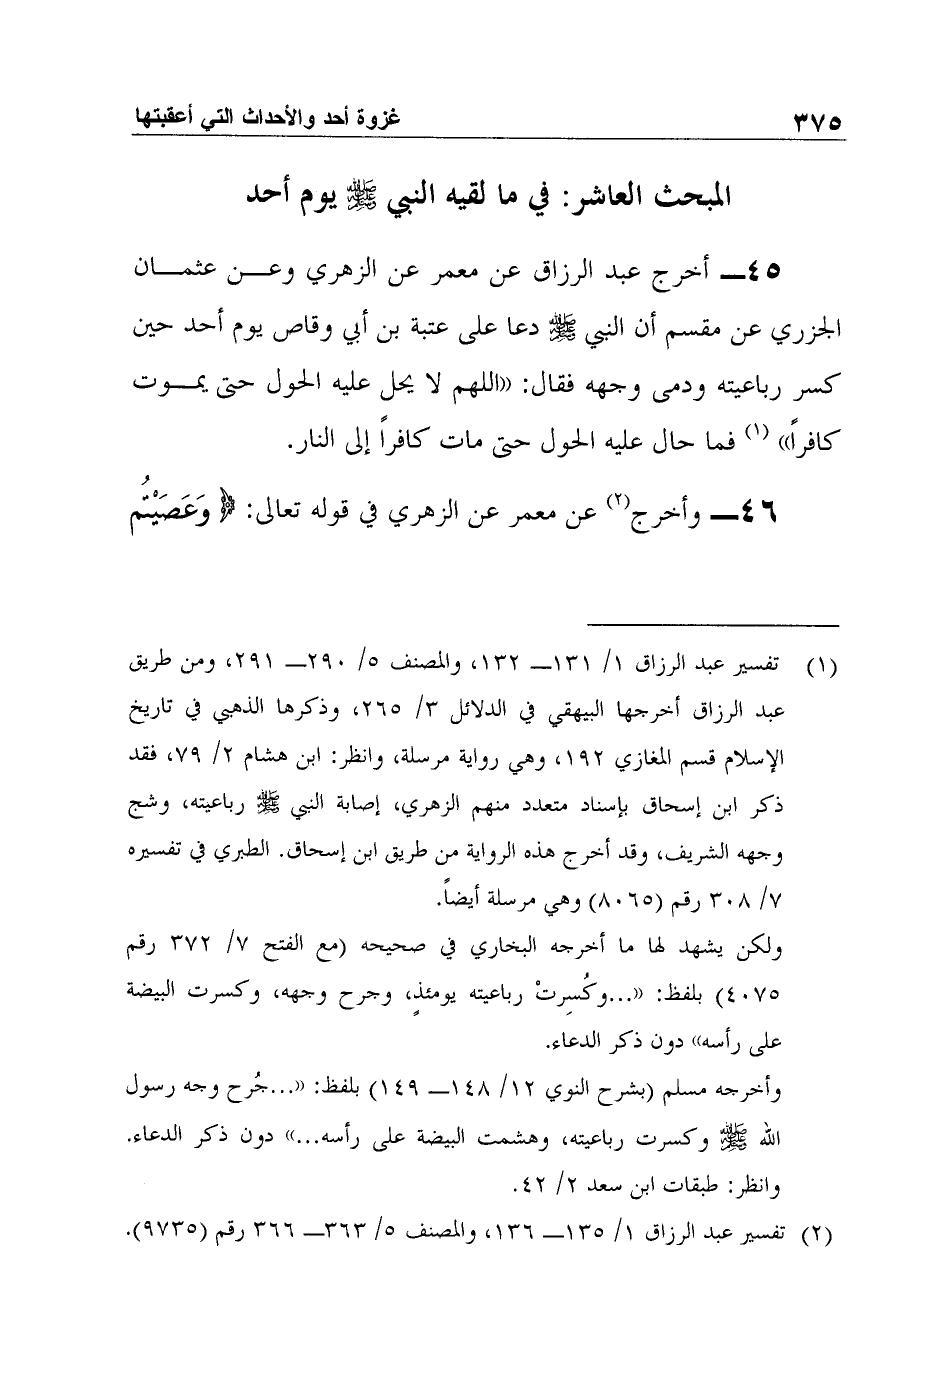 ٣٧٥ غزوة أحد والأحداث التي أعقبتها
المبحث العاشر: في ما لقيه النبي ﷺ يوم أحد
٤٥ــ أخرج عبد الرزاق عن معمر عن الزهري وعـــن عثمـــان
الجزري عن مقسم أن النبي ﷺ دعا على عتبة بن أبي وقاص يوم أحد حين
كسر رباعيته ودمى وجهه فقال: «اللهم لا يحل عليه الحول حتى يمـــوت
كافراً» (١) فما حال عليه الحول حتى مات كافراً إلى النار.
٤٦ــ وأخرج(٢) عن معمر عن الزهري في قوله تعالى: ﴿ وَعَصَيْتُم
(١) تفسير عبد الرزاق ١/ ١٣١ــ ١٣٢، والمصنف ٥/ ٢٩٠ــ ٢٩١، ومن طريق
عبد الرزاق أخرجها البيهقي في الدلائل ٣/ ٢٦٥، وذكرها الذهبي في تاريخ
الإسلام قسم المغازي ١٩٢، وهي رواية مرسلة، وانظر: ابن هشام ٢/ ٧٩، فقد
ذكر ابن إسحاق بإسناد متعدد منهم الزهري، إصابة النبي ﷺ رباعيته، وشج
وجهه الشريف، وقد أخرج هذه الرواية من طريق ابن إسحاق. الطبري في تفسيره
٧/ ٣٠٨ رقم (٨٠٦٥) وهي مرسلة أيضاً.
ولكن يشهد لها ما أخرجه البخاري في صحيحه (مع الفتح ٧/ ٣٧٢ رقم
٤٠٧٥) بلفظ: «...وكُسِرتْ رباعيته يومئذٍ، وجرح وجهه، وكسرت البيضة
على رأسه» دون ذكر الدعاء.
وأخرجه مسلم (بشرح النوي ١٢/ ١٤٨ــ ١٤٩) بلفظ: «...جُرح وجه رسول
الله ﷺ وكسرت رباعيته، وهشمت البيضة على رأسه...» دون ذكر الدعاء.
وانظر: طبقات ابن سعد ٢/ ٤٢.
(٢) تفسير عبد الرزاق ١/ ١٣٥ــ ١٣٦، والمصنف ٥/ ٣٦٣ــ ٣٦٦ رقم (٩٧٣٥).